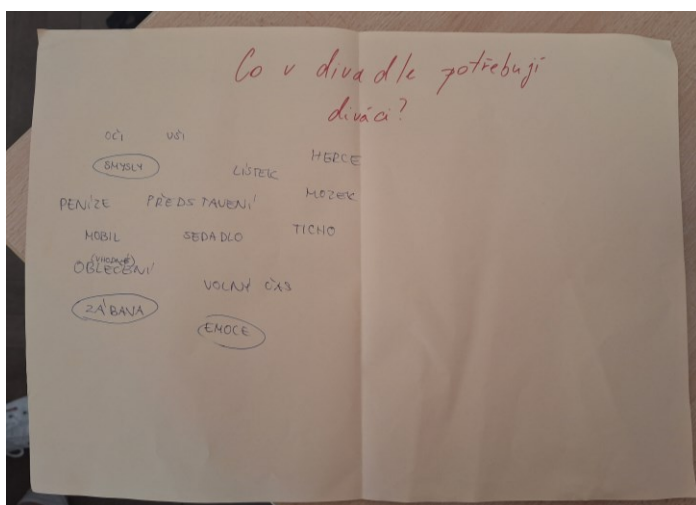 Co v divadle potřebují
diváci?
OČI UŠI
SMYSLY
LÍSTEK
HERCE
PENÍZE PŘEDSTAVENÍ
MOZEK
MOBIL SEDADLO TICHO
(VHODNÉ)
OBLEČENÍ
VOLNÝ ČAS
ZÁBAVA
EMOCE